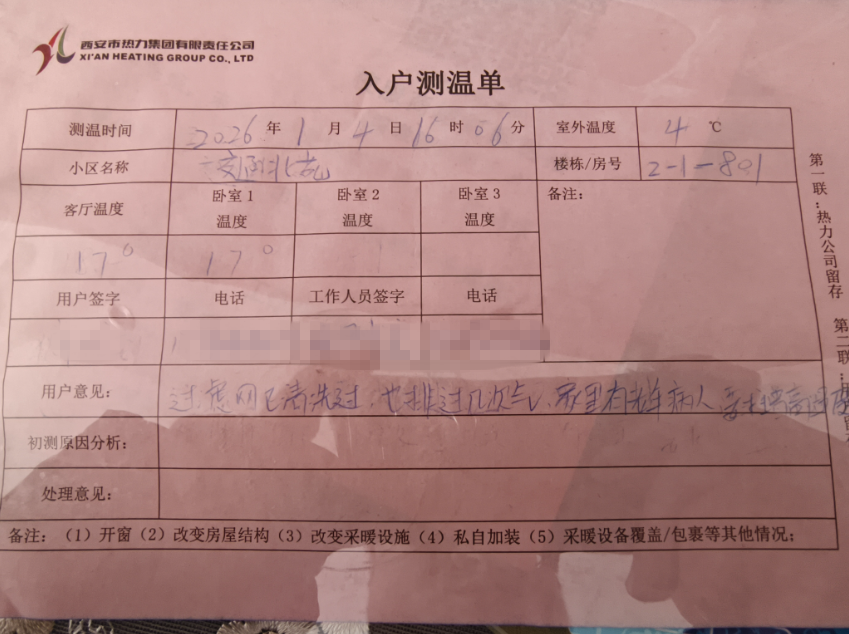 西安市热力集团有限责任公司
XI'AN HEATING GROUP CO., LTD
入户测温单
测温时间 2026 年 1 月 4 日 16 时 06 分 室外温度 4 ℃
小区名称 交通北苑 楼栋/房号 2-1-801
客厅温度 卧室1 温度 卧室2 温度 卧室3 温度 备注:
17° 17°
用户签字 电话 工作人员签字 电话
用户意见: 过滤网已清洗过,也排过几次气、家里有 病人 提高温度
初测原因分析:
处理意见:
备注:(1)开窗(2)改变房屋结构(3)改变采暖设施(4)私自加装(5)采暖设备覆盖/包裹等其他情况;
第一联:热力公司留存
第二联:用